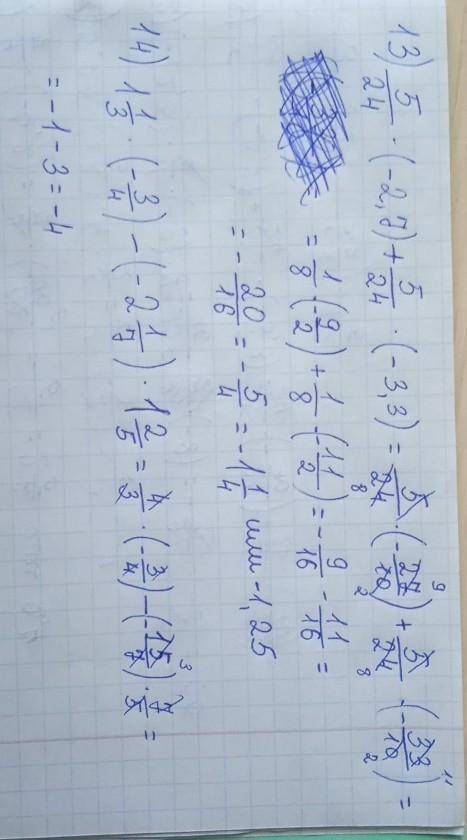 13) 5/24 · (-2,7) + 5/24 · (-3,3) = 5/24 8 · (-27/10 9 2) + 5/24 8 · (-33/10 11 2) =
= 1/8 (-9/2) + 1/8 · (-11/2) = -9/16 - 11/16 =
= -20/16 = -5/4 = -1 1/4 или -1,25
14) 1 1/3 · (-3/4) - (-2 1/7) · 1 2/5 = 4/3 · (-3/4) - (-15/7 3) · 7/5 =
= -1 - 3 = -4